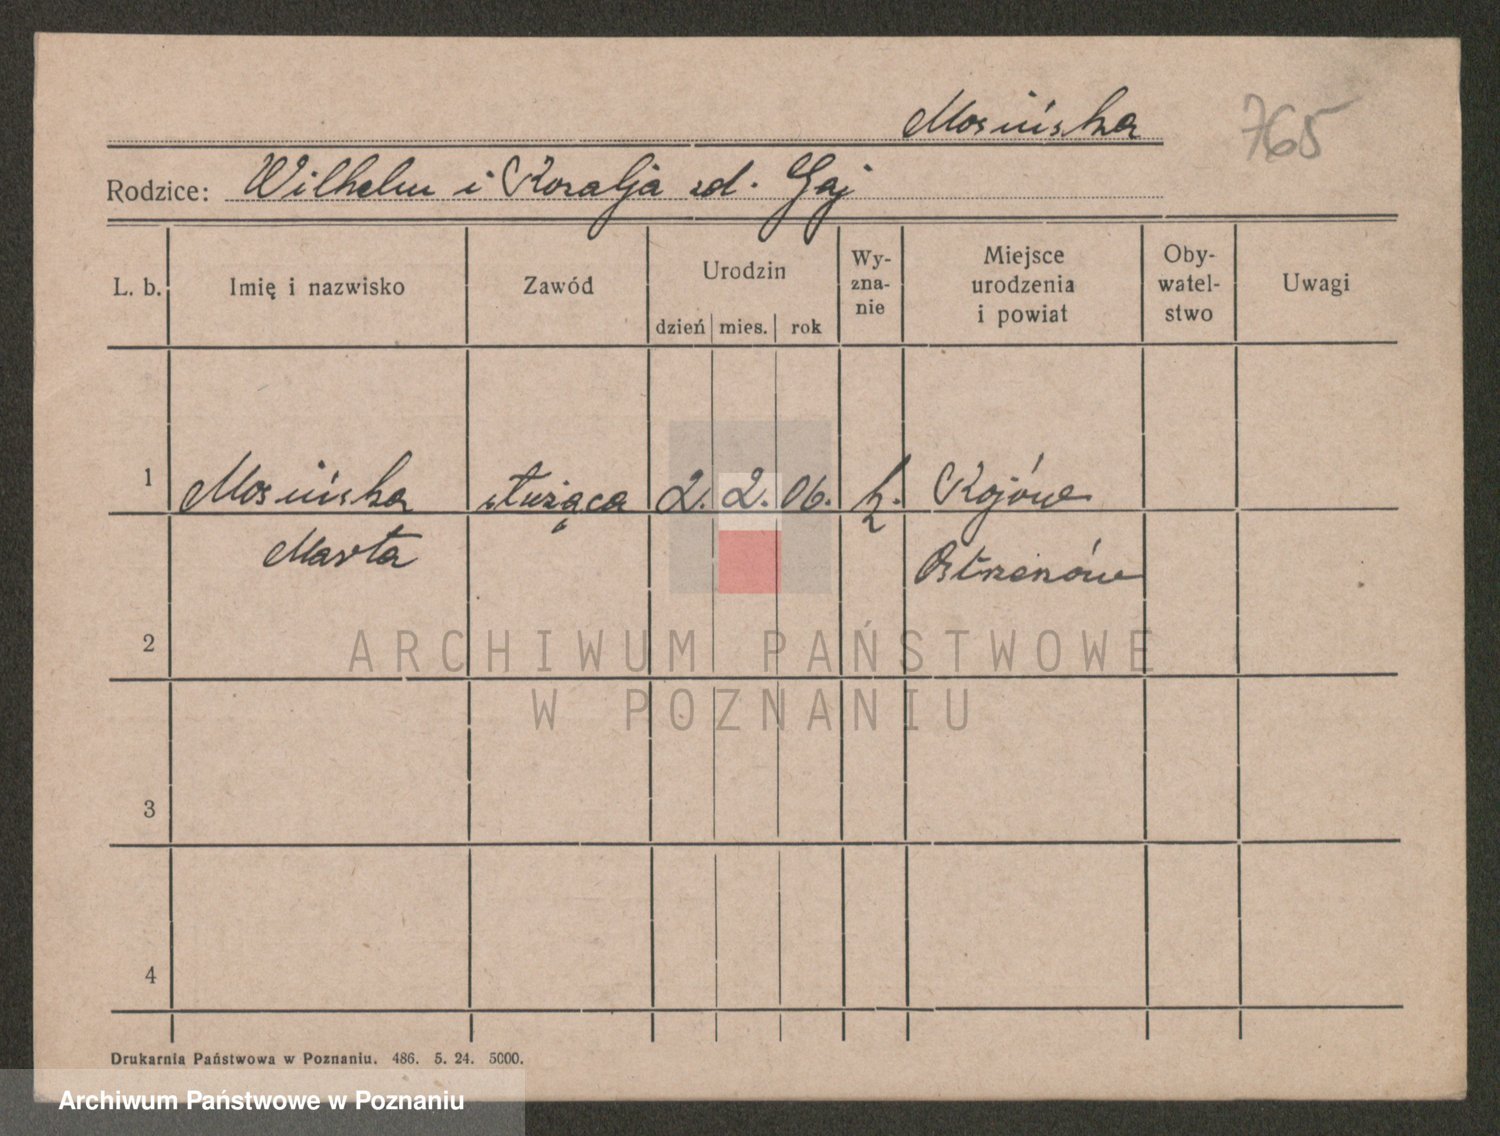 Mosińska 765
Rodzice: Wilhelm i Rozalja zd. Gaj
L. b. Imię i nazwisko Zawód Urodzin dzień mies. rok Wy-zna-nie Miejsce urodzenia i powiat Oby-watel-stwo Uwagi
1 Mosińska służąca 2. 2. 06. k. Rojów
Marta Ostrzeszów
2
3
4
Drukarnia Państwowa w Poznaniu. 486. 5. 24. 5000.
ARCHIWUM PAŃSTWOWE
W POZNANIU
Archiwum Państwowe w Poznaniu